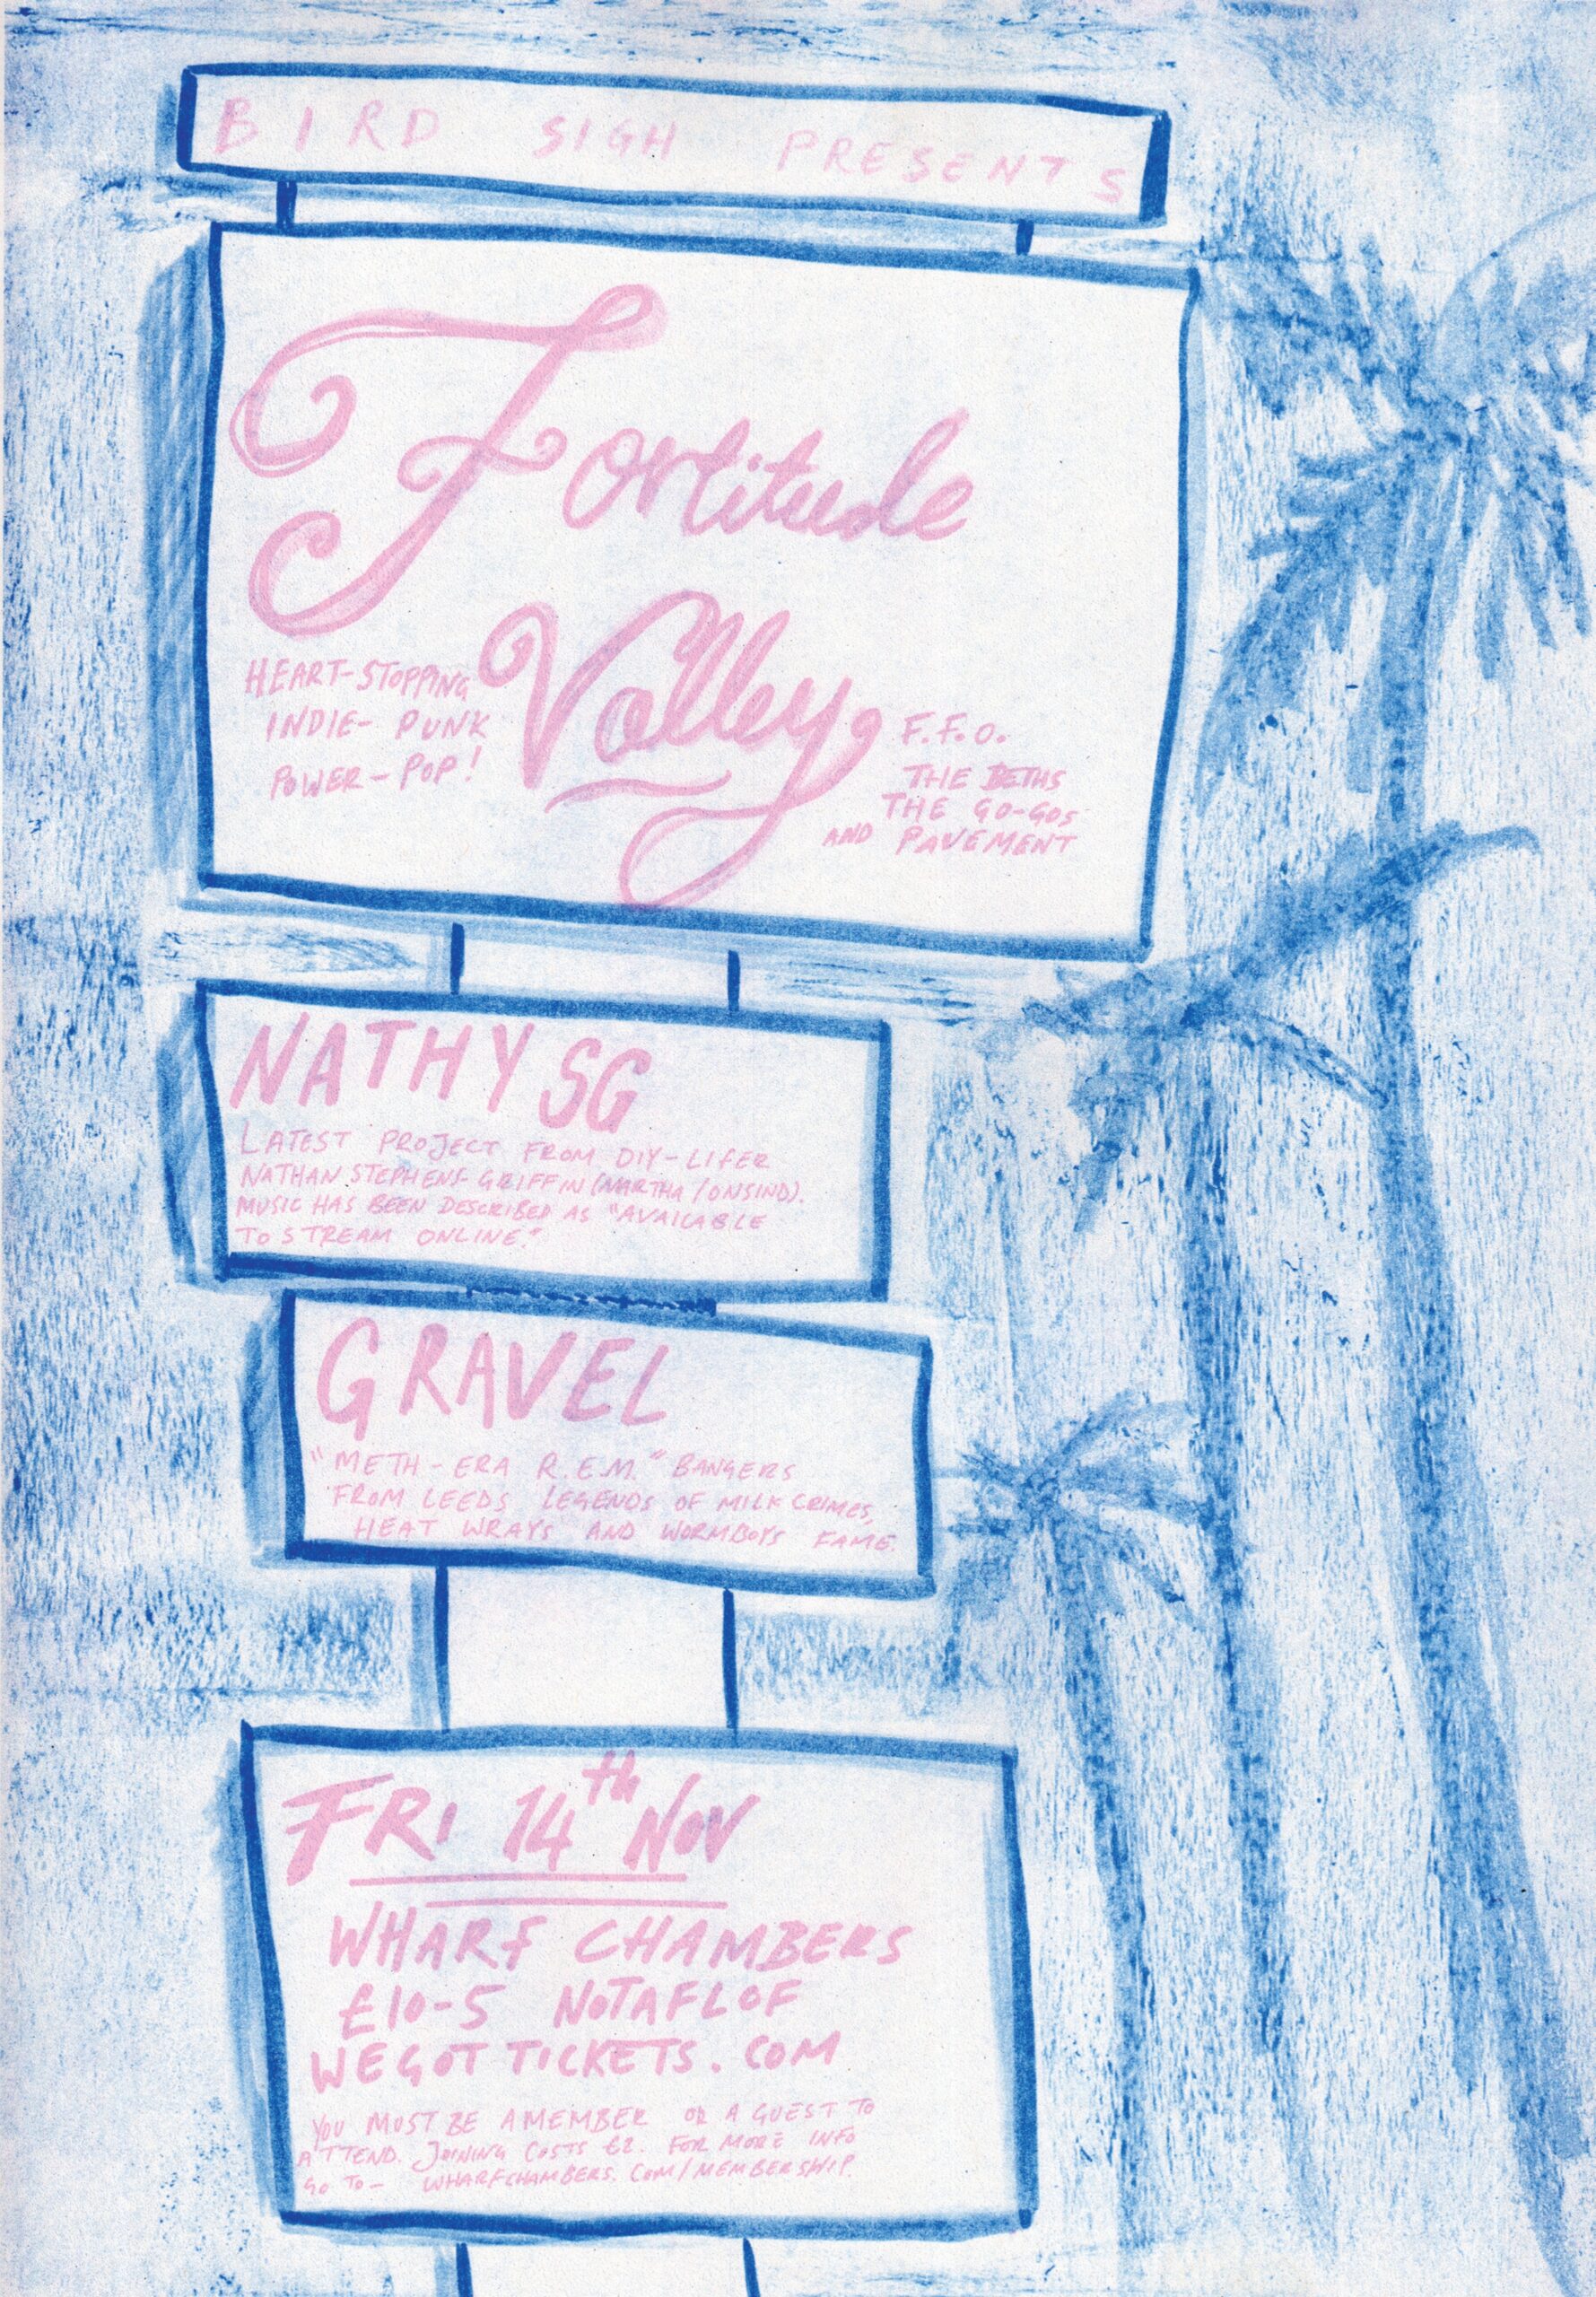 BIRD SIGH PRESENTS
Fortitude
Valley
HEART-STOPPING
INDIE- PUNK
POWER-POP!
F.F.O.
THE BETHS
THE GO-GOS
AND PAVEMENT
NATHY SG
LATEST PROJECT FROM DIY-LIFER
NATHAN STEPHENS-GRIFFIN (MARTHA/ONSIND).
MUSIC HAS BEEN DESCRIBED AS "AVAILABLE
TO STREAM ONLINE."
GRAVEL
"METH-ERA R.E.M." BANGERS
FROM LEEDS LEGENDS OF MILK CRIMES,
HEAT WRAYS AND WORMBOYS FAME.
FRI 14th NOV
WHARF CHAMBERS
£10-5 NOTAFLOF
WEGOTTICKETS.COM
YOU MUST BE A MEMBER OR A GUEST TO
ATTEND. JOINING COSTS £2. FOR MORE INFO
GO TO- WHARFCHAMBERS.COM/MEMBERSHIP.